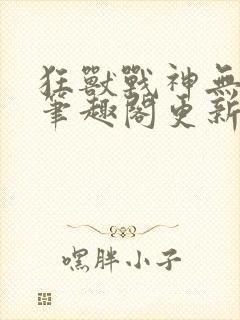 狂獸戰神無
筆趣閣更新
嘿胖小子